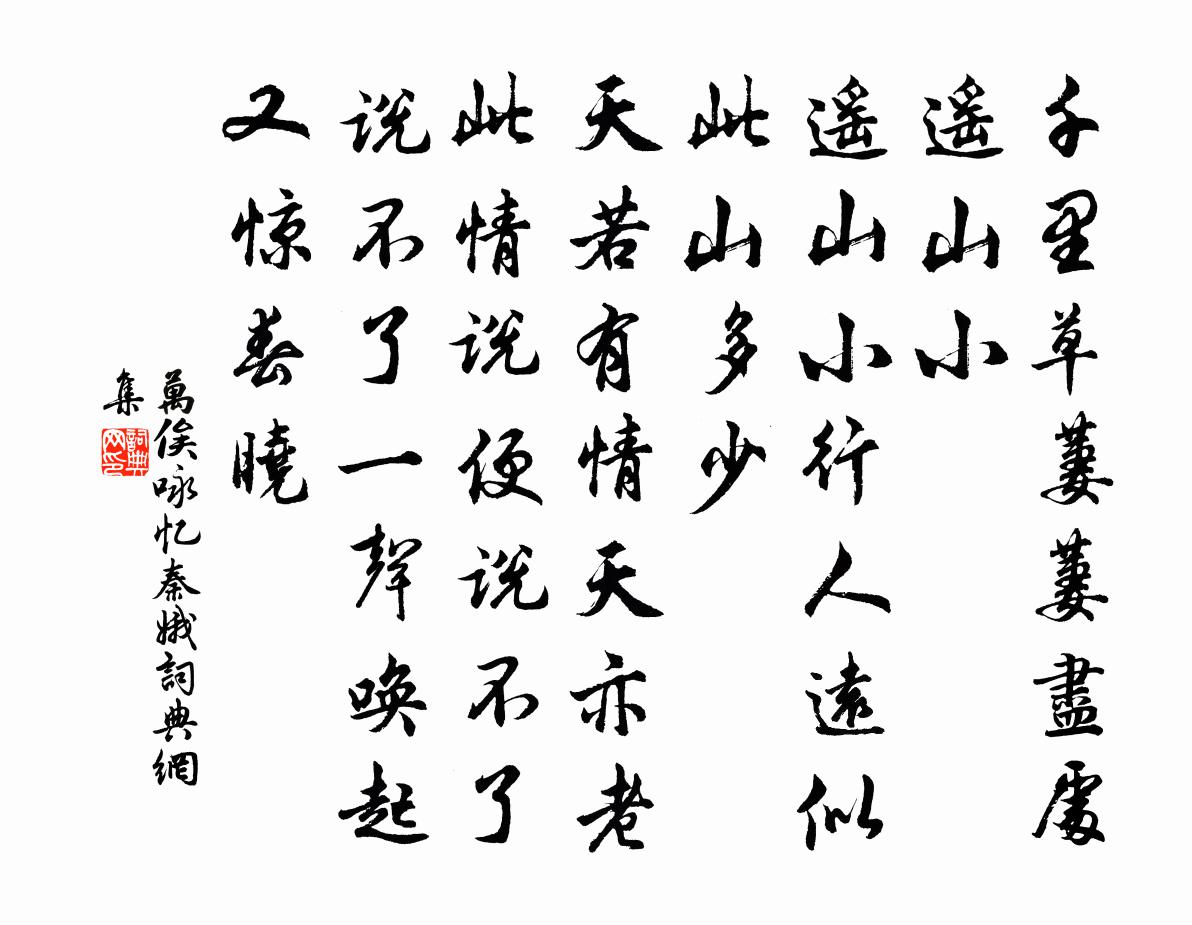 千里草萋萋盡處
遥山小
遥山小行人遠似
此山多少
天若有情天亦老
此情说便说不了
说不了一聲唤起
又惊春曉
萬俟咏忆秦娥詞典網
集
詞典
网印